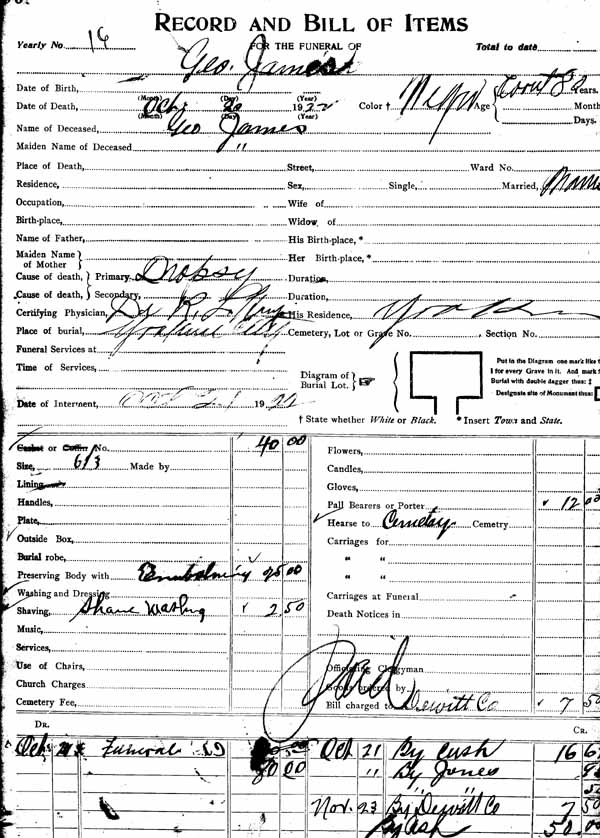 RECORD AND BILL OF ITEMS
Yearly No. 16 FOR THE FUNERAL OF Total to date
Geo. James
Date of Birth, (Month) (Day) (Year) Color † Age Years.
Date of Death, Oct 20 1922 Months
(Month) (Day) (Year) Days.
Name of Deceased, Geo James
Maiden Name of Deceased "
Place of Death, Street, Ward No.
Residence, Sex, Single, Married,
Occupation, Wife of
Birth-place, Widow of
Name of Father, His Birth-place, *
Maiden Name of Mother } Her Birth-place, *
Cause of death, } Primary, Dropsy Duration,
Cause of death, } Secondary, Duration,
Certifying Physician, His Residence, Yoakum
Place of burial, Cemetery, Lot or Grave No. Section No.
Funeral Services at
Time of Services,
Diagram of Burial Lot. }
Put in the Diagram one mark like
for every Grave in it. And mark
Burial with double dagger thus: ‡
Designate site of Monument thus:
Date of Interment, Oct 21 1922
† State whether White or Black. * Insert Town and State.
Casket or Coffin No. 40 00
Size, 6/3 Made by
Lining
Handles,
Plate,
Outside Box,
Burial robe,
Preserving Body with Embalming 25 00
Washing and Dressing
Shaving, Shave Washing 2 50
Music,
Services,
Use of Chairs,
Church Charges
Cemetery Fee,
Flowers,
Candles,
Gloves,
Pall Bearers or Porter 12 00
Hearse to Cemetary Cemetry
Carriages for
" "
" "
Carriages at Funeral
Death Notices in
Paid
Officiating Clergyman
Goods ordered by
Bill charged to Dewitt Co 7 50
DR. CR.
Oct 21 Funeral
80 00
Oct 21 By Cash 16
" By Jones
Nov. 23 By Dewitt Co 7 50
By Cash